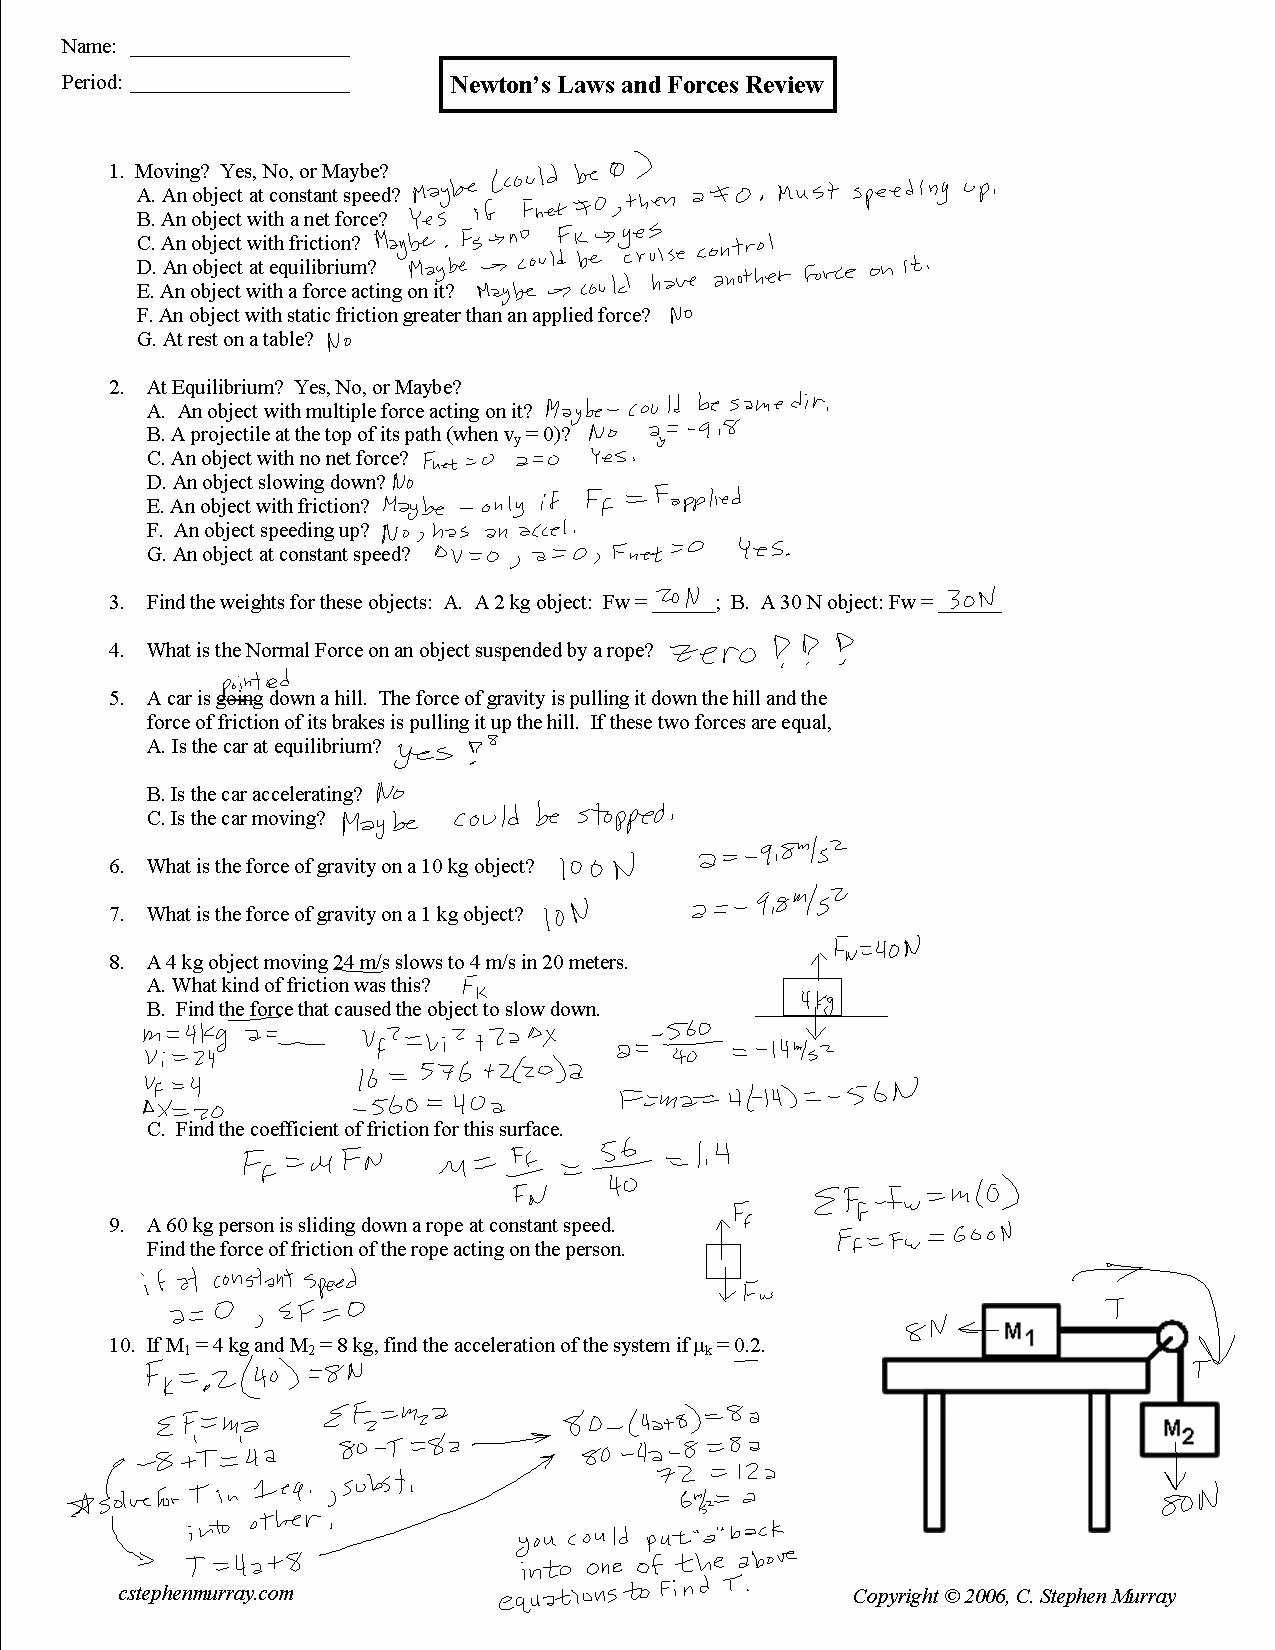 Name: ____________________
Period: ____________________
Newton's Laws and Forces Review
1. Moving? Yes, No, or Maybe?
A. An object at constant speed? Maybe (could be 0)
B. An object with a net force? Yes if Fnet ≠ 0, then a ≠ 0. Must speeding up.
C. An object with friction? Maybe. Fs → no FK → yes
D. An object at equilibrium? Maybe → could be cruise control
E. An object with a force acting on it? Maybe → could have another force on it.
F. An object with static friction greater than an applied force? No
G. At rest on a table? No
2. At Equilibrium? Yes, No, or Maybe?
A. An object with multiple force acting on it? Maybe – could be same dir.
B. A projectile at the top of its path (when vy = 0)? No ay = -9.8
C. An object with no net force? Fnet = 0 a = 0 Yes.
D. An object slowing down? No
E. An object with friction? Maybe – only if Ff = Fapplied
F. An object speeding up? No, has an accel.
G. An object at constant speed? ΔV = 0, a = 0, Fnet = 0 Yes.
3. Find the weights for these objects: A. A 2 kg object: Fw = 20N; B. A 30 N object: Fw = 30N
4. What is the Normal Force on an object suspended by a rope? zero !!!
pointed
5. A car is going down a hill. The force of gravity is pulling it down the hill and the
force of friction of its brakes is pulling it up the hill. If these two forces are equal,
A. Is the car at equilibrium? yes !
B. Is the car accelerating? No
C. Is the car moving? Maybe could be stopped.
6. What is the force of gravity on a 10 kg object? 100N a = -9.8 m/s²
7. What is the force of gravity on a 1 kg object? 10N a = -9.8 m/s²
8. A 4 kg object moving 24 m/s slows to 4 m/s in 20 meters.
Fw = 40N
A. What kind of friction was this? FK
4kg
B. Find the force that caused the object to slow down.
m = 4kg a = ___ Vf² = Vi² + 2aΔX a = -560/40 = -14 m/s²
Vi = 24
16 = 576 + 2(20)a
Vf = 4
ΔX = 20 -560 = 40a F = ma = 4(-14) = -56N
C. Find the coefficient of friction for this surface.
Ff = μFN μ = Ff/FN = 56/40 = 1.4
9. A 60 kg person is sliding down a rope at constant speed.
Find the force of friction of the rope acting on the person.
Ff
Fw
ΣFf - Fw = m(0)
Ff = Fw = 600N
if at constant speed
a = 0, ΣF = 0
10. If M1 = 4 kg and M2 = 8 kg, find the acceleration of the system if μk = 0.2.
8N
M1
T
T
M2
80N
FK = .2(40) = 8N
ΣF1 = m1a ΣF2 = m2a 80 - (4a+8) = 8a
-8 + T = 4a 80 - T = 8a 80 - 4a - 8 = 8a
72 = 12a
solve for T in 1 eq., subst. 6 m/s² = a
into other.
T = 4a + 8
you could put "a" back
into one of the above
equations to find T.
cstephenmurray.com
Copyright © 2006, C. Stephen Murray